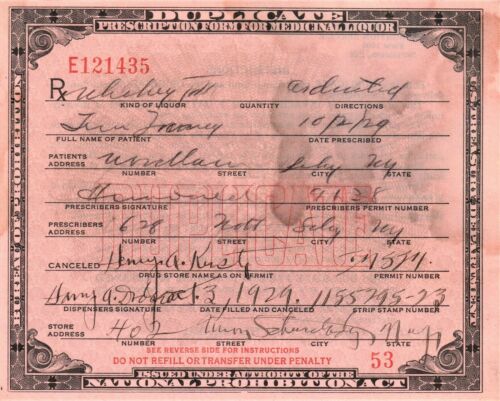 DUPLICATE
PRESCRIPTION FORM FOR MEDICINAL LIQUOR
E121435
Rx Whiskey as directed
KIND OF LIQUOR QUANTITY DIRECTIONS
10/2/29
FULL NAME OF PATIENT DATE PRESCRIBED
PATIENTS ADDRESS Woodlawn NY
NUMBER STREET CITY STATE
DUPLICATE
PRESCRIBERS SIGNATURE PRESCRIBERS PERMIT NUMBER
PRESCRIBERS ADDRESS 628 Nott NY
NUMBER STREET CITY STATE
CANCELED Henry A.
DRUG STORE NAME AS ON PERMIT PERMIT NUMBER
Oct 3, 1929. 1155795-23
DISPENSERS SIGNATURE DATE FILLED AND CANCELED STRIP STAMP NUMBER
STORE ADDRESS 402 Union Schenectady
NUMBER STREET CITY STATE
SEE REVERSE SIDE FOR INSTRUCTIONS
DO NOT REFILL OR TRANSFER UNDER PENALTY 53
ISSUED UNDER AUTHORITY OF THE
NATIONAL PROHIBITION ACT